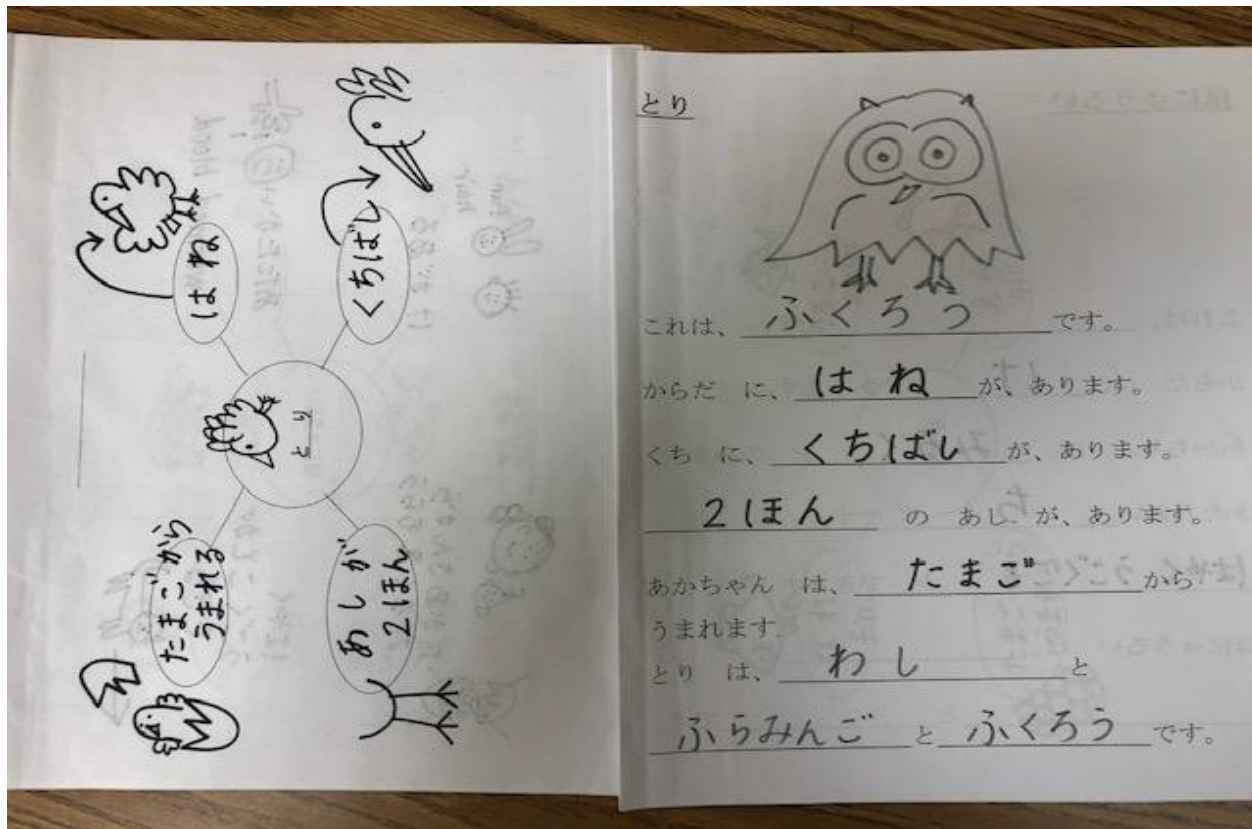 はね
くちばし
とり
たまごから
うまれる
あしが
2ほん
とり
これは、ふくろうです。
からだ に、はねが、あります。
くち に、くちばしが、あります。
2ほん の あし が、あります。
あかちゃん は、たまごから
うまれます
とり は、わしと
ふらみんごとふくろうです。